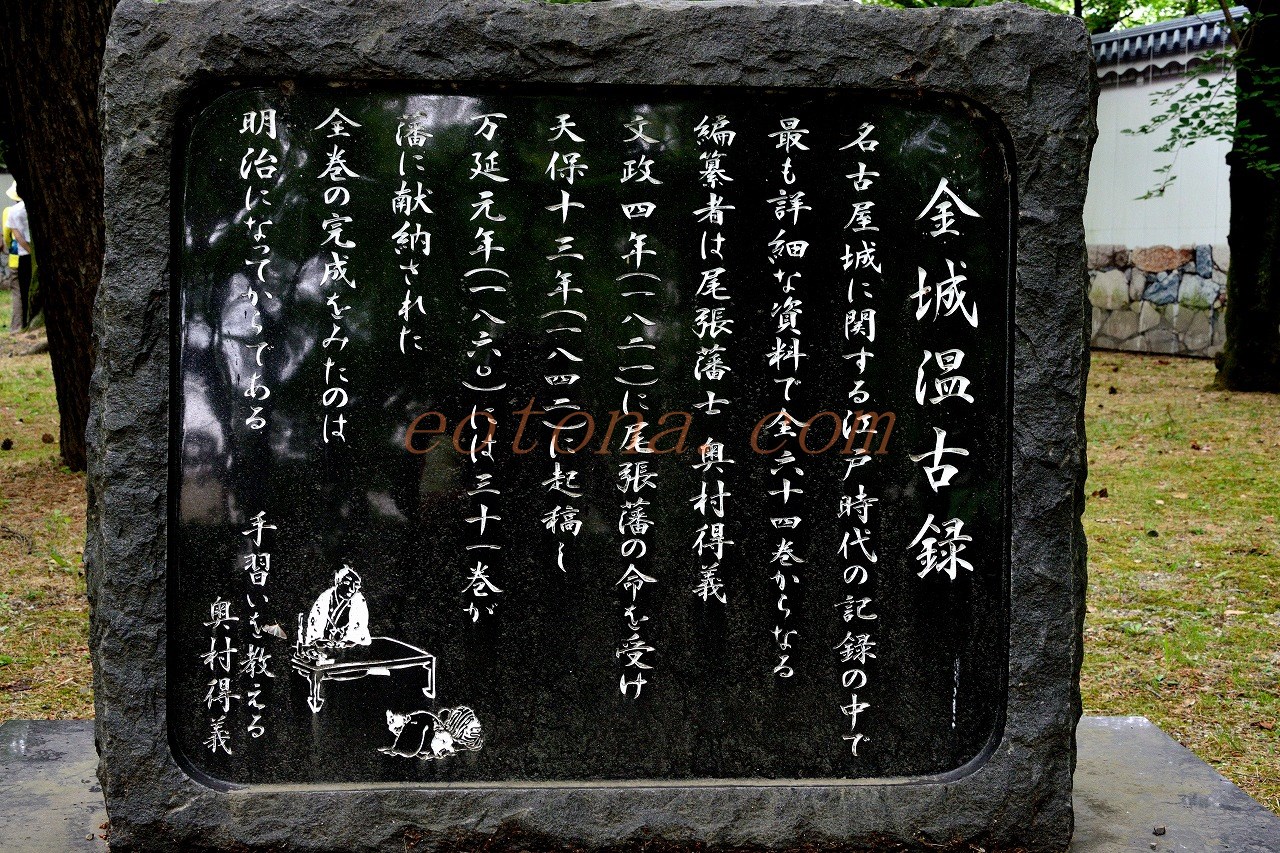 金城温古録
名古屋城に関する江戸時代の記録の中で
最も詳細な資料で全六十四巻からなる
編纂者は尾張藩士 奥村得義
文政四年(一八二一)に尾張藩の命を受け
天保十三年(一八四二)に起稿し
万延元年(一八六〇)には三十一巻が
藩に献納された
全巻の完成をみたのは
明治になってからである
手習いを教える
奥村得義
eotona.com